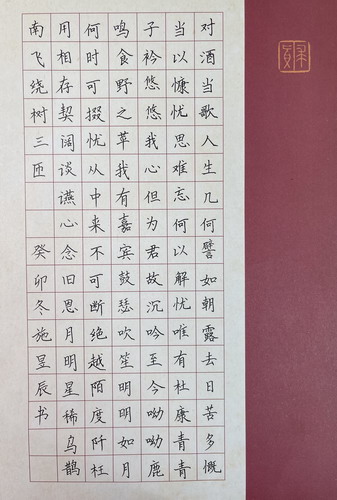 对酒当歌人生几何譬如朝露去日苦多慨
当以慷忧思难忘何以解忧唯有杜康青青
子衿悠悠我心但为君故沉吟至今呦呦鹿
鸣食野之草我有嘉宾鼓瑟吹笙明明如月
何时可掇忧从中来不可断绝越陌度阡枉
用相存契阔谈䜩心念旧恩月明星稀乌鹊
南飞绕树三匝 癸卯冬施昱辰书